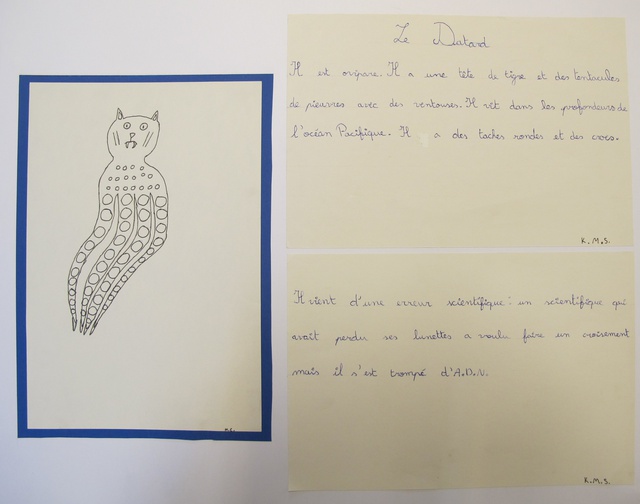 Le Datard
Il est ovipare. Il a une tête de tigre et des tentacules
de pieuvres avec des ventouses. Il vit dans les profondeurs de
l'océan Pacifique. Il a des taches rondes et des crocs.
K.M.S.
Il vient d'une erreur scientifique : un scientifique qui
avait perdu ses lunettes a voulu faire un croisement
mais il s'est trompé d'A.D.N.
K.M.S.